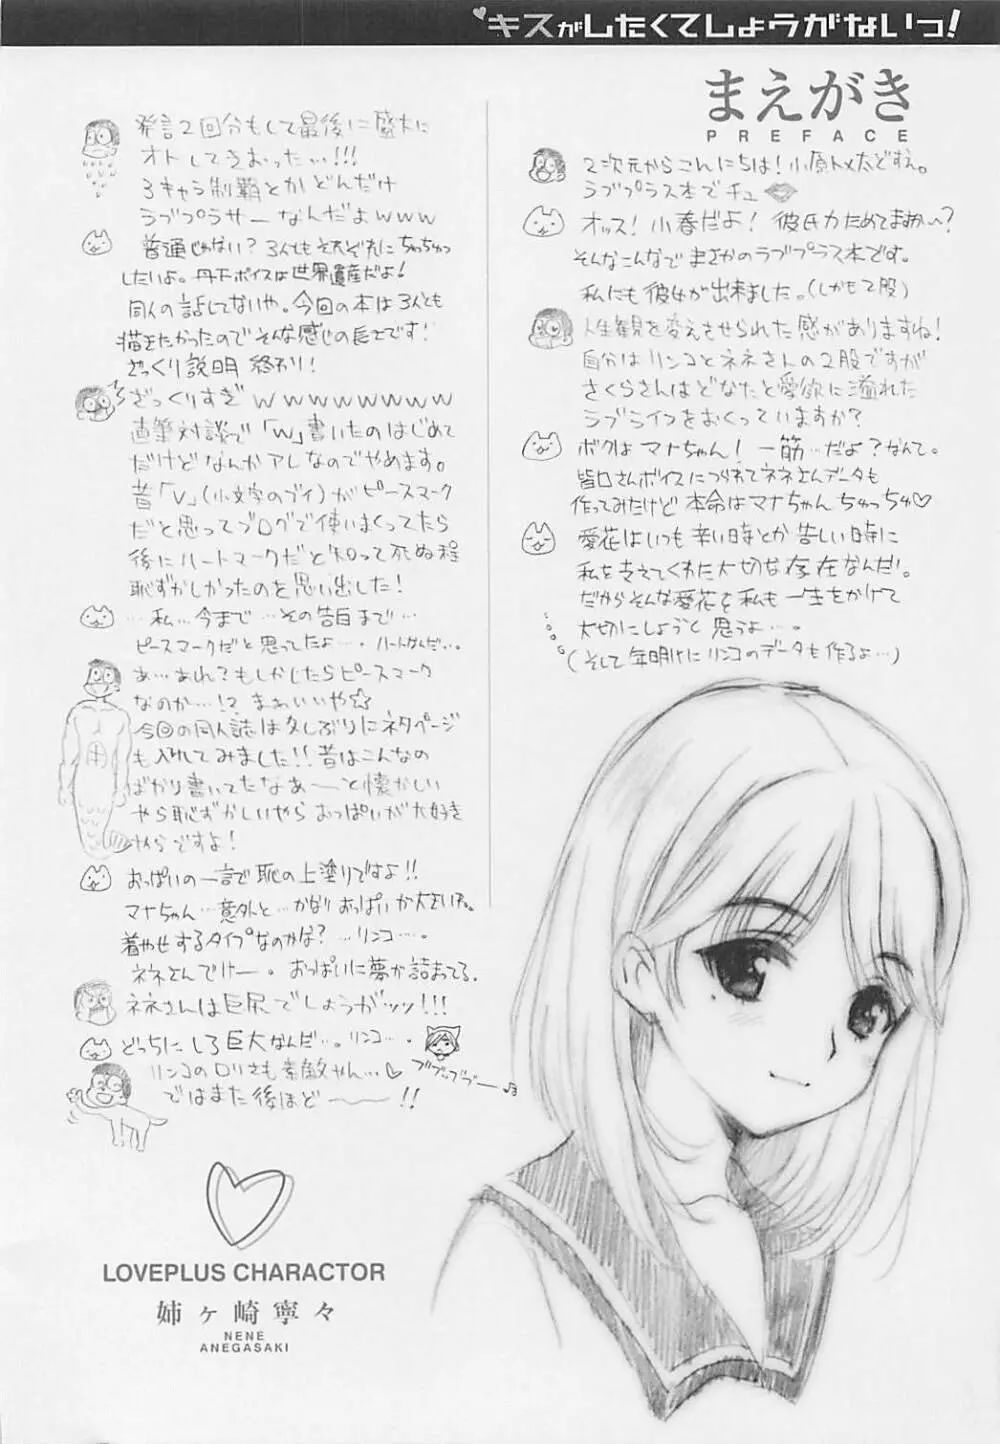 キスがしたくてしょうがないっ!
まえがき
PREFACE
2次元からこんにちは!小原トメ太どすえ。
ラブプラス本でチュ
オッス!小春だよ!彼氏力ためてますか〜?
そんなこんなでまさかのラブプラス本です。
私にも彼女が出来ました。(しかも2股)
人生観を変えさせられた感がありますね!
自分はリンコとネネさんの2股ですが
さくらさんはどなたと愛欲に溢れた
ラブライフをおくっていますか?
ボクはマナちゃん!一筋…だよ?なんて。
皆口さんボイスにつられてネネさんデータも
作ってみたけど本命はマナちゃんちゅっちゅ♡
愛花はいつも辛い時とか苦しい時に
私を支えてくれた大切な存在なんだ!。
だからそんな愛花を私も一生をかけて
大切にしようと思うよ…。
(そして年明けにリンコのデータも作るよ…)
発言2回分もして最後に盛大に
オトしてきおったぃ!!!
3キャラ制覇とかどんだけ
ラブプラサーなんだよwww
普通じゃない?3人ともそれぞれにちゅっちゅっ
したいよ。丹下ボイスは世界遺産だよ!
同人の話してないや。今回の本は3人とも
描きたかったのでそんな感じの長さです!
ざっくり説明終わり!
ざっくりすぎwwwwwwww
直筆対談で「w」書いたのはじめて
だけどなんかアレなのでやめます。
昔「v」(小文字のブイ)がピースマーク
だと思ってブログで使いまくってたら
後にハートマークだと知って死ぬ程
恥ずかしかったのを思い出した!
…私…今まで…その告白まで…
ピースマークだと思ってたよ…。ハートなんだ…。
あ…あれ?もしかしたらピースマーク
なのか…!?まぁいいや☆
今回の同人誌は久しぶりにネタページ
も入れてみました!!昔はこんなの
ばかり書いてたなあーと懐かしい
やら恥ずかしいやらおっぱいが大好き
やらですよ!
おっぱいの一言で恥の上塗りですよ!!
マナちゃん…意外と…かなりおっぱいが大きいね。
着やせするタイプなのかな?…リンコ…。
ネネさんでけー。おっぱいに夢が詰まってる。
ネネさんは巨尻でしょうがッッ!!!
どっちにしろ巨大なんだ…。リンコ…。
ブブッブブー♪
リンコのロリさも素敵やん…♡
ではまた後ほど〜!!
LOVEPLUS CHARACTOR
姉ヶ崎寧々
NENE
ANEGASAKI